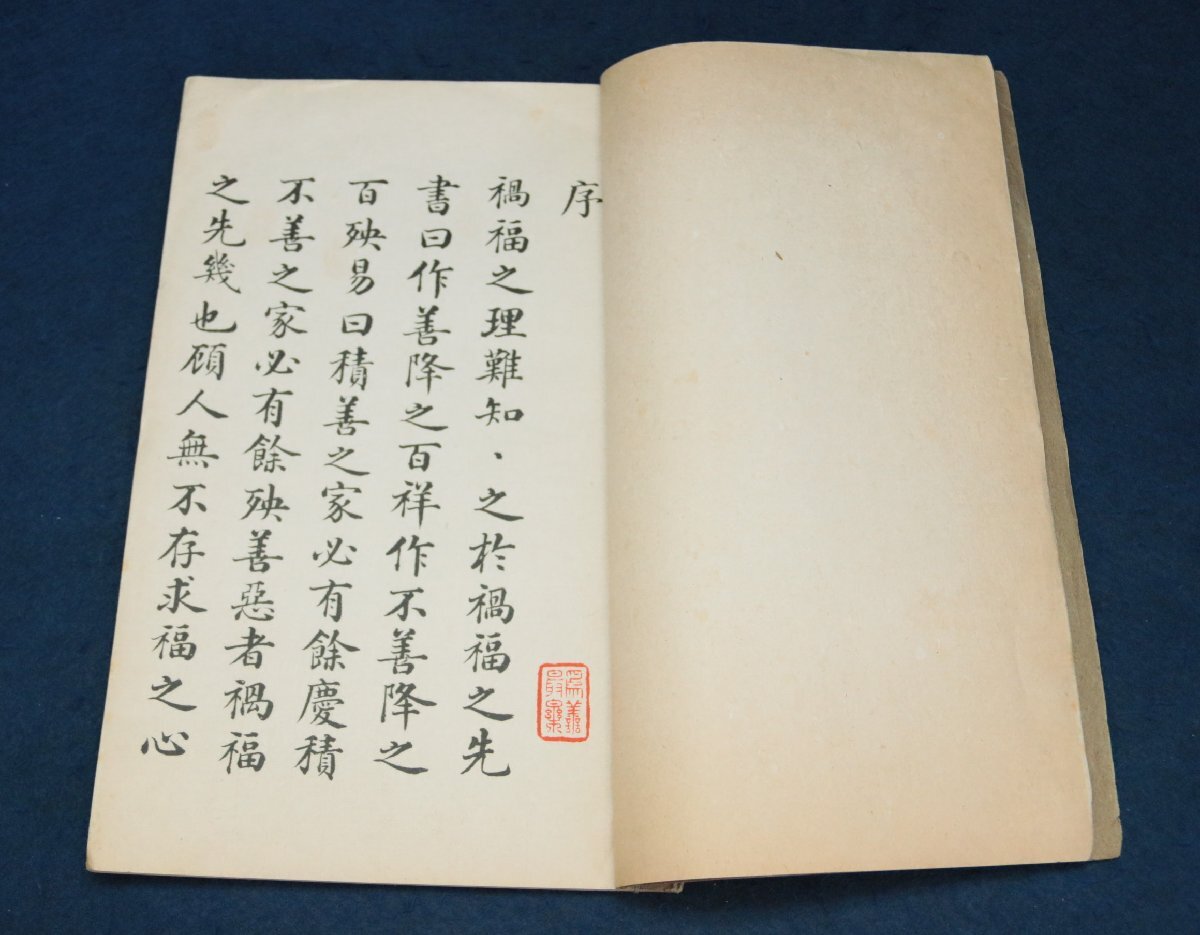 序
禍福之理難知、之於禍福之先
書曰作善降之百祥作不善降之
百殃易曰積善之家必有餘慶積
不善之家必有餘殃善惡者禍福
之先幾也顧人無不存求福之心
為善最樂